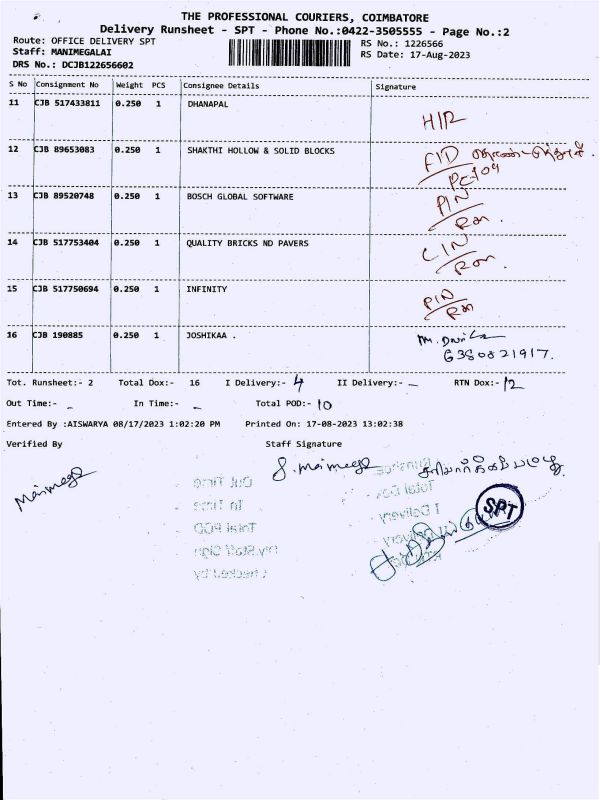 THE PROFESSIONAL COURIERS, COIMBATORE
Delivery Runsheet - SPT - Phone No.:0422-3505555 - Page No.:2
Route: OFFICE DELIVERY SPT
RS No.: 1226566
Staff: MANIMEGALAI
RS Date: 17-Aug-2023
DRS No.: DCJB122656602
S No Consignment No Weight PCS Consignee Details Signature
11 CJB 517433811 0.250 1 DHANAPAL H/R
12 CJB 89653083 0.250 1 SHAKTHI HOLLOW & SOLID BLOCKS
13 CJB 89520748 0.250 1 BOSCH GLOBAL SOFTWARE
14 CJB 517753404 0.250 1 QUALITY BRICKS ND PAVERS
15 CJB 517750694 0.250 1 INFINITY
16 CJB 190885 0.250 1 JOSHIKAA .
6380821917.
Tot. Runsheet:- 2 Total Dox:- 16 I Delivery:- 4 II Delivery:- - RTN Dox:- 12
Out Time:- - In Time:- - Total POD:- 10
Entered By :AISWARYA 08/17/2023 1:02:20 PM Printed On: 17-08-2023 13:02:38
Verified By Staff Signature
SPT